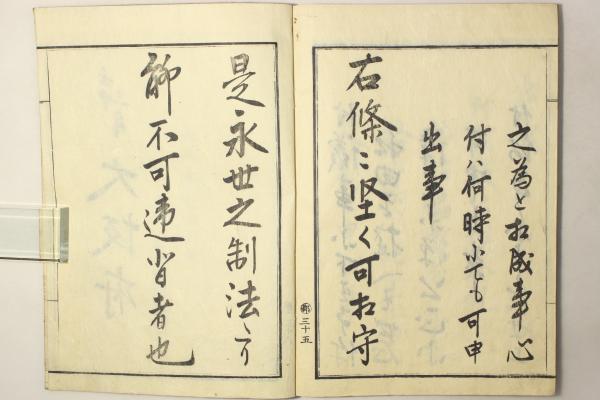 之為と相成事心
付ハ何時ニ而も可申
出事
右條〻堅く可相守
是永世之制法ニ而
聊不可違背者也
三十五